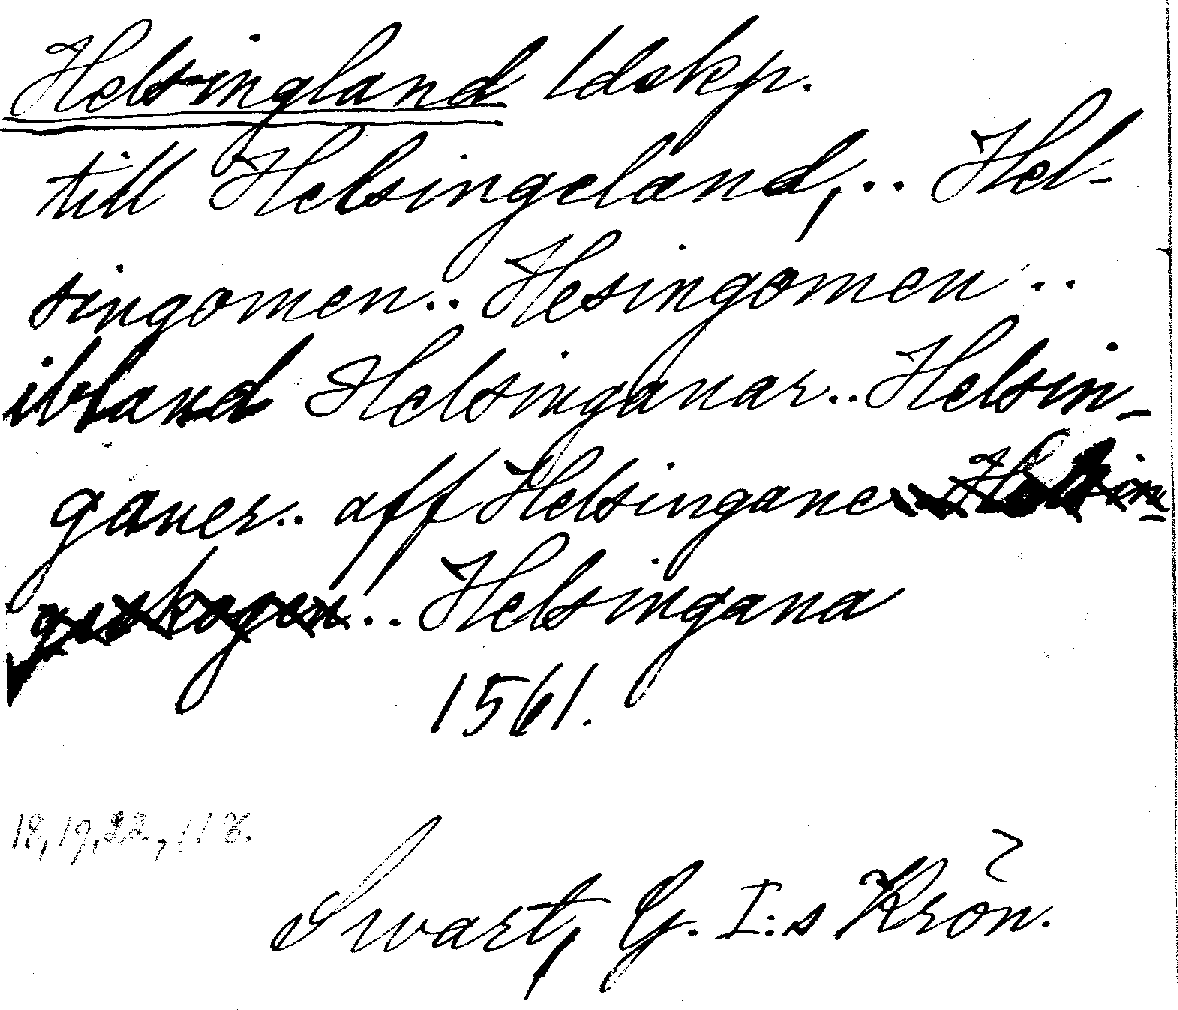 Helsingland ldskp.
till Helsingeland,.. Hel-
singomen.. Hesingomen..
ibland Helsinganar.. Helsin-
ganer.. aff Helsingane
.. Helsingana
1561.
18, 19, 22, 118.
Swart, G. I:s Krön.